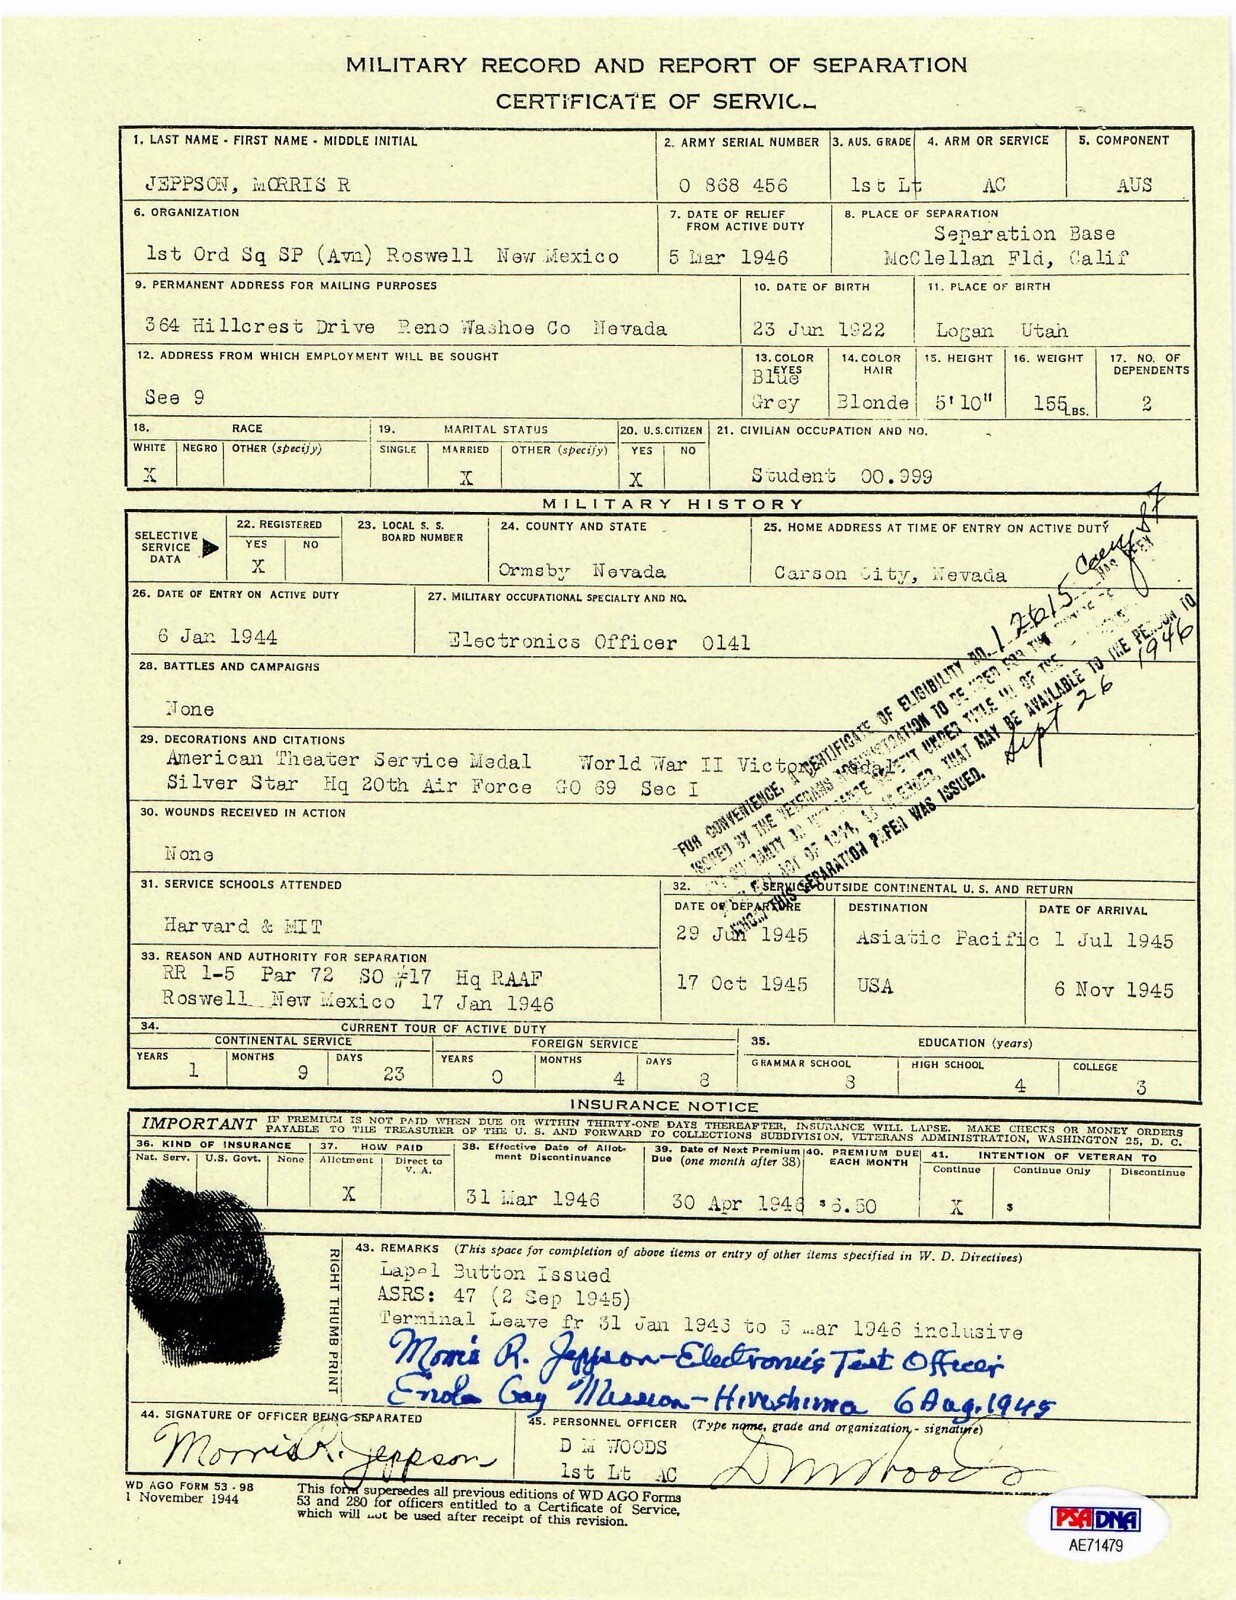 MILITARY RECORD AND REPORT OF SEPARATION
CERTIFICATE OF SERVIC
1. LAST NAME - FIRST NAME - MIDDLE INITIAL
JEPPSON, MORRIS R
2. ARMY SERIAL NUMBER
O 868 456
3. AUS. GRADE
1st Lt
4. ARM OR SERVICE
AC
5. COMPONENT
AUS
6. ORGANIZATION
1st Ord Sq SP (Avn) Roswell New Mexico
7. DATE OF RELIEF
FROM ACTIVE DUTY
5 Mar 1946
8. PLACE OF SEPARATION
Separation Base
McClellan Fld, Calif
9. PERMANENT ADDRESS FOR MAILING PURPOSES
364 Hillcrest Drive Reno Washoe Co Nevada
10. DATE OF BIRTH
23 Jun 1922
11. PLACE OF BIRTH
Logan Utah
12. ADDRESS FROM WHICH EMPLOYMENT WILL BE SOUGHT
See 9
13. COLOR
EYES
Blue
Grey
14. COLOR
HAIR
Blonde
15. HEIGHT
5'10"
16. WEIGHT
155 LBS.
17. NO. OF
DEPENDENTS
2
18. RACE
WHITE NEGRO OTHER (specify)
X
19. MARITAL STATUS
SINGLE MARRIED OTHER (specify)
X
20. U.S. CITIZEN
YES NO
X
21. CIVILIAN OCCUPATION AND NO.
Student 00.999
MILITARY HISTORY
SELECTIVE
SERVICE
DATA
22. REGISTERED
YES NO
X
23. LOCAL S. S.
BOARD NUMBER
24. COUNTY AND STATE
Ormsby Nevada
25. HOME ADDRESS AT TIME OF ENTRY ON ACTIVE DUTY
Carson City, Nevada
26. DATE OF ENTRY ON ACTIVE DUTY
6 Jan 1944
27. MILITARY OCCUPATIONAL SPECIALTY AND NO.
Electronics Officer 0141
28. BATTLES AND CAMPAIGNS
None
29. DECORATIONS AND CITATIONS
American Theater Service Medal World War II Victory Medal
Silver Star Hq 20th Air Force GO 69 Sec I
FOR CONVENIENCE, A CERTIFICATE OF ELIGIBILITY NO. 12615 HAS BEEN
ISSUED BY THE VETERANS ADMINISTRATION TO BE USED FOR THE
UNDER TITLE III OF THE
ACT OF 1944, AS AMENDED, THAT MAY BE AVAILABLE TO THE PERSON TO
WHOM THIS SEPARATION PAPER WAS ISSUED.
Sept 26 1946
30. WOUNDS RECEIVED IN ACTION
None
31. SERVICE SCHOOLS ATTENDED
Harvard & MIT
32. SERVICE OUTSIDE CONTINENTAL U. S. AND RETURN
DATE OF DEPARTURE DESTINATION DATE OF ARRIVAL
29 Jun 1945 Asiatic Pacific 1 Jul 1945
17 Oct 1945 USA 6 Nov 1945
33. REASON AND AUTHORITY FOR SEPARATION
RR 1-5 Par 72 SO #17 Hq RAAF
Roswell New Mexico 17 Jan 1946
34. CURRENT TOUR OF ACTIVE DUTY
CONTINENTAL SERVICE FOREIGN SERVICE
YEARS MONTHS DAYS YEARS MONTHS DAYS
1 9 23 0 4 8
35. EDUCATION (years)
GRAMMAR SCHOOL HIGH SCHOOL COLLEGE
8 4 3
INSURANCE NOTICE
IMPORTANT IF PREMIUM IS NOT PAID WHEN DUE OR WITHIN THIRTY-ONE DAYS THEREAFTER, INSURANCE WILL LAPSE. MAKE CHECKS OR MONEY ORDERS
PAYABLE TO THE TREASURER OF THE U. S. AND FORWARD TO COLLECTIONS SUBDIVISION, VETERANS ADMINISTRATION, WASHINGTON 25, D. C.
36. KIND OF INSURANCE
Nat. Serv. U.S. Govt. None
37. HOW PAID
Allotment Direct to
V. A.
X
38. Effective Date of Allot-
ment Discontinuance
31 Mar 1946
39. Date of Next Premium
Due (one month after 38)
30 Apr 1946
40. PREMIUM DUE
EACH MONTH
$ 6.50
41. INTENTION OF VETERAN TO
Continue Continue Only Discontinue
X $
RIGHT THUMB PRINT
43. REMARKS (This space for completion of above items or entry of other items specified in W. D. Directives)
Lapel Button Issued
ASRS: 47 (2 Sep 1945)
Terminal Leave fr 31 Jan 1946 to 5 Mar 1946 inclusive
Morris R. Jeppson - Electronics Test Officer
Enola Gay Mission - Hiroshima 6 Aug. 1945
44. SIGNATURE OF OFFICER BEING SEPARATED
Morris R. Jeppson
45. PERSONNEL OFFICER (Type name, grade and organization - signature)
D M WOODS
1st Lt AC
D M Woods
WD AGO FORM 53 - 98
1 November 1944
This form supersedes all previous editions of WD AGO Forms
53 and 280 for officers entitled to a Certificate of Service,
which will not be used after receipt of this revision.
PSA DNA
AE71479